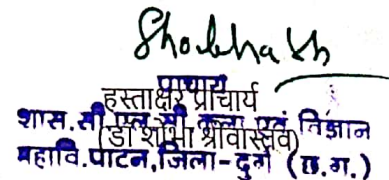 Shobha
प्राचार्य
हस्ताक्षर प्राचार्य
शास. सी एल सी कला एवं विज्ञान
(डॉ शोभा श्रीवास्तव)
महावि. पाटन, जिला-दुर्ग (छ.ग.)